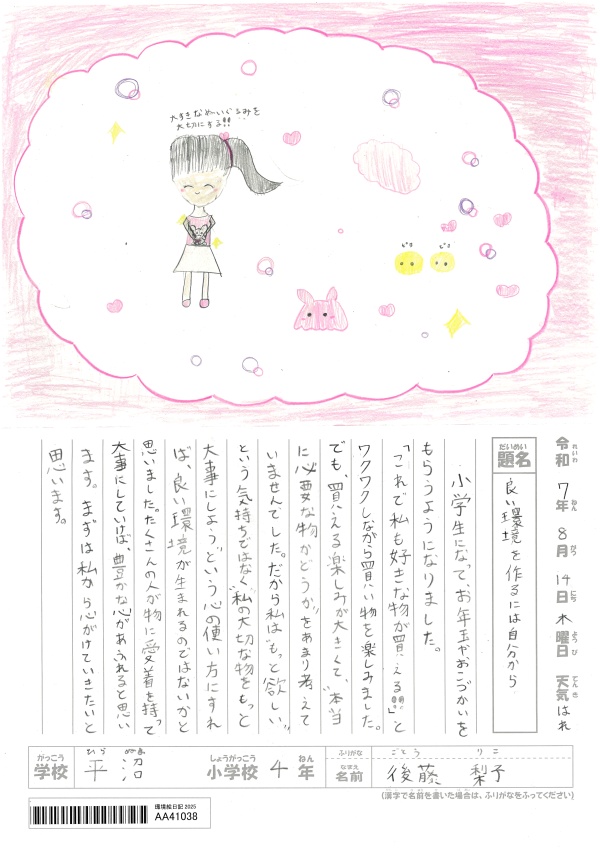 大すきなぬいぐるみを
大切にする!!
ピヨ
ピヨ
令和7年8月14日木曜日 天気はれ
れいわ ねん がつ にち ようび てんき
だいめい
題名
良い環境を作るには自分から
小学生になって、お年玉やおこづかいを
もらうようになりました。
「これで私も好きな物が買える!!!」と
ワクワクしながら買い物を楽しみました。
でも、買える楽しみが大きくて、"本当
に必要な物かどうか"をあまり考えて
いませんでした。だから私は"もっと欲しい"
という気持ちではなく"私の大切な物をもっと
大事にしよう"という心の使い方にすれ
ば、良い環境が生まれるのではないかと
思いました。たくさんの人が物に愛着を持って
大事にしていけば、豊かな心があふれると思い
ます。まずは私から心がけていきたいと
思います。
がっこう
学校
ひら ぬま
平沼
しょうがっこう ねん
小学校4年
ふりがな
ごとう りこ
なまえ
名前
後藤 梨子
(漢字で名前を書いた場合は、ふりがなをふってください)
環境絵日記 2025
AA41038